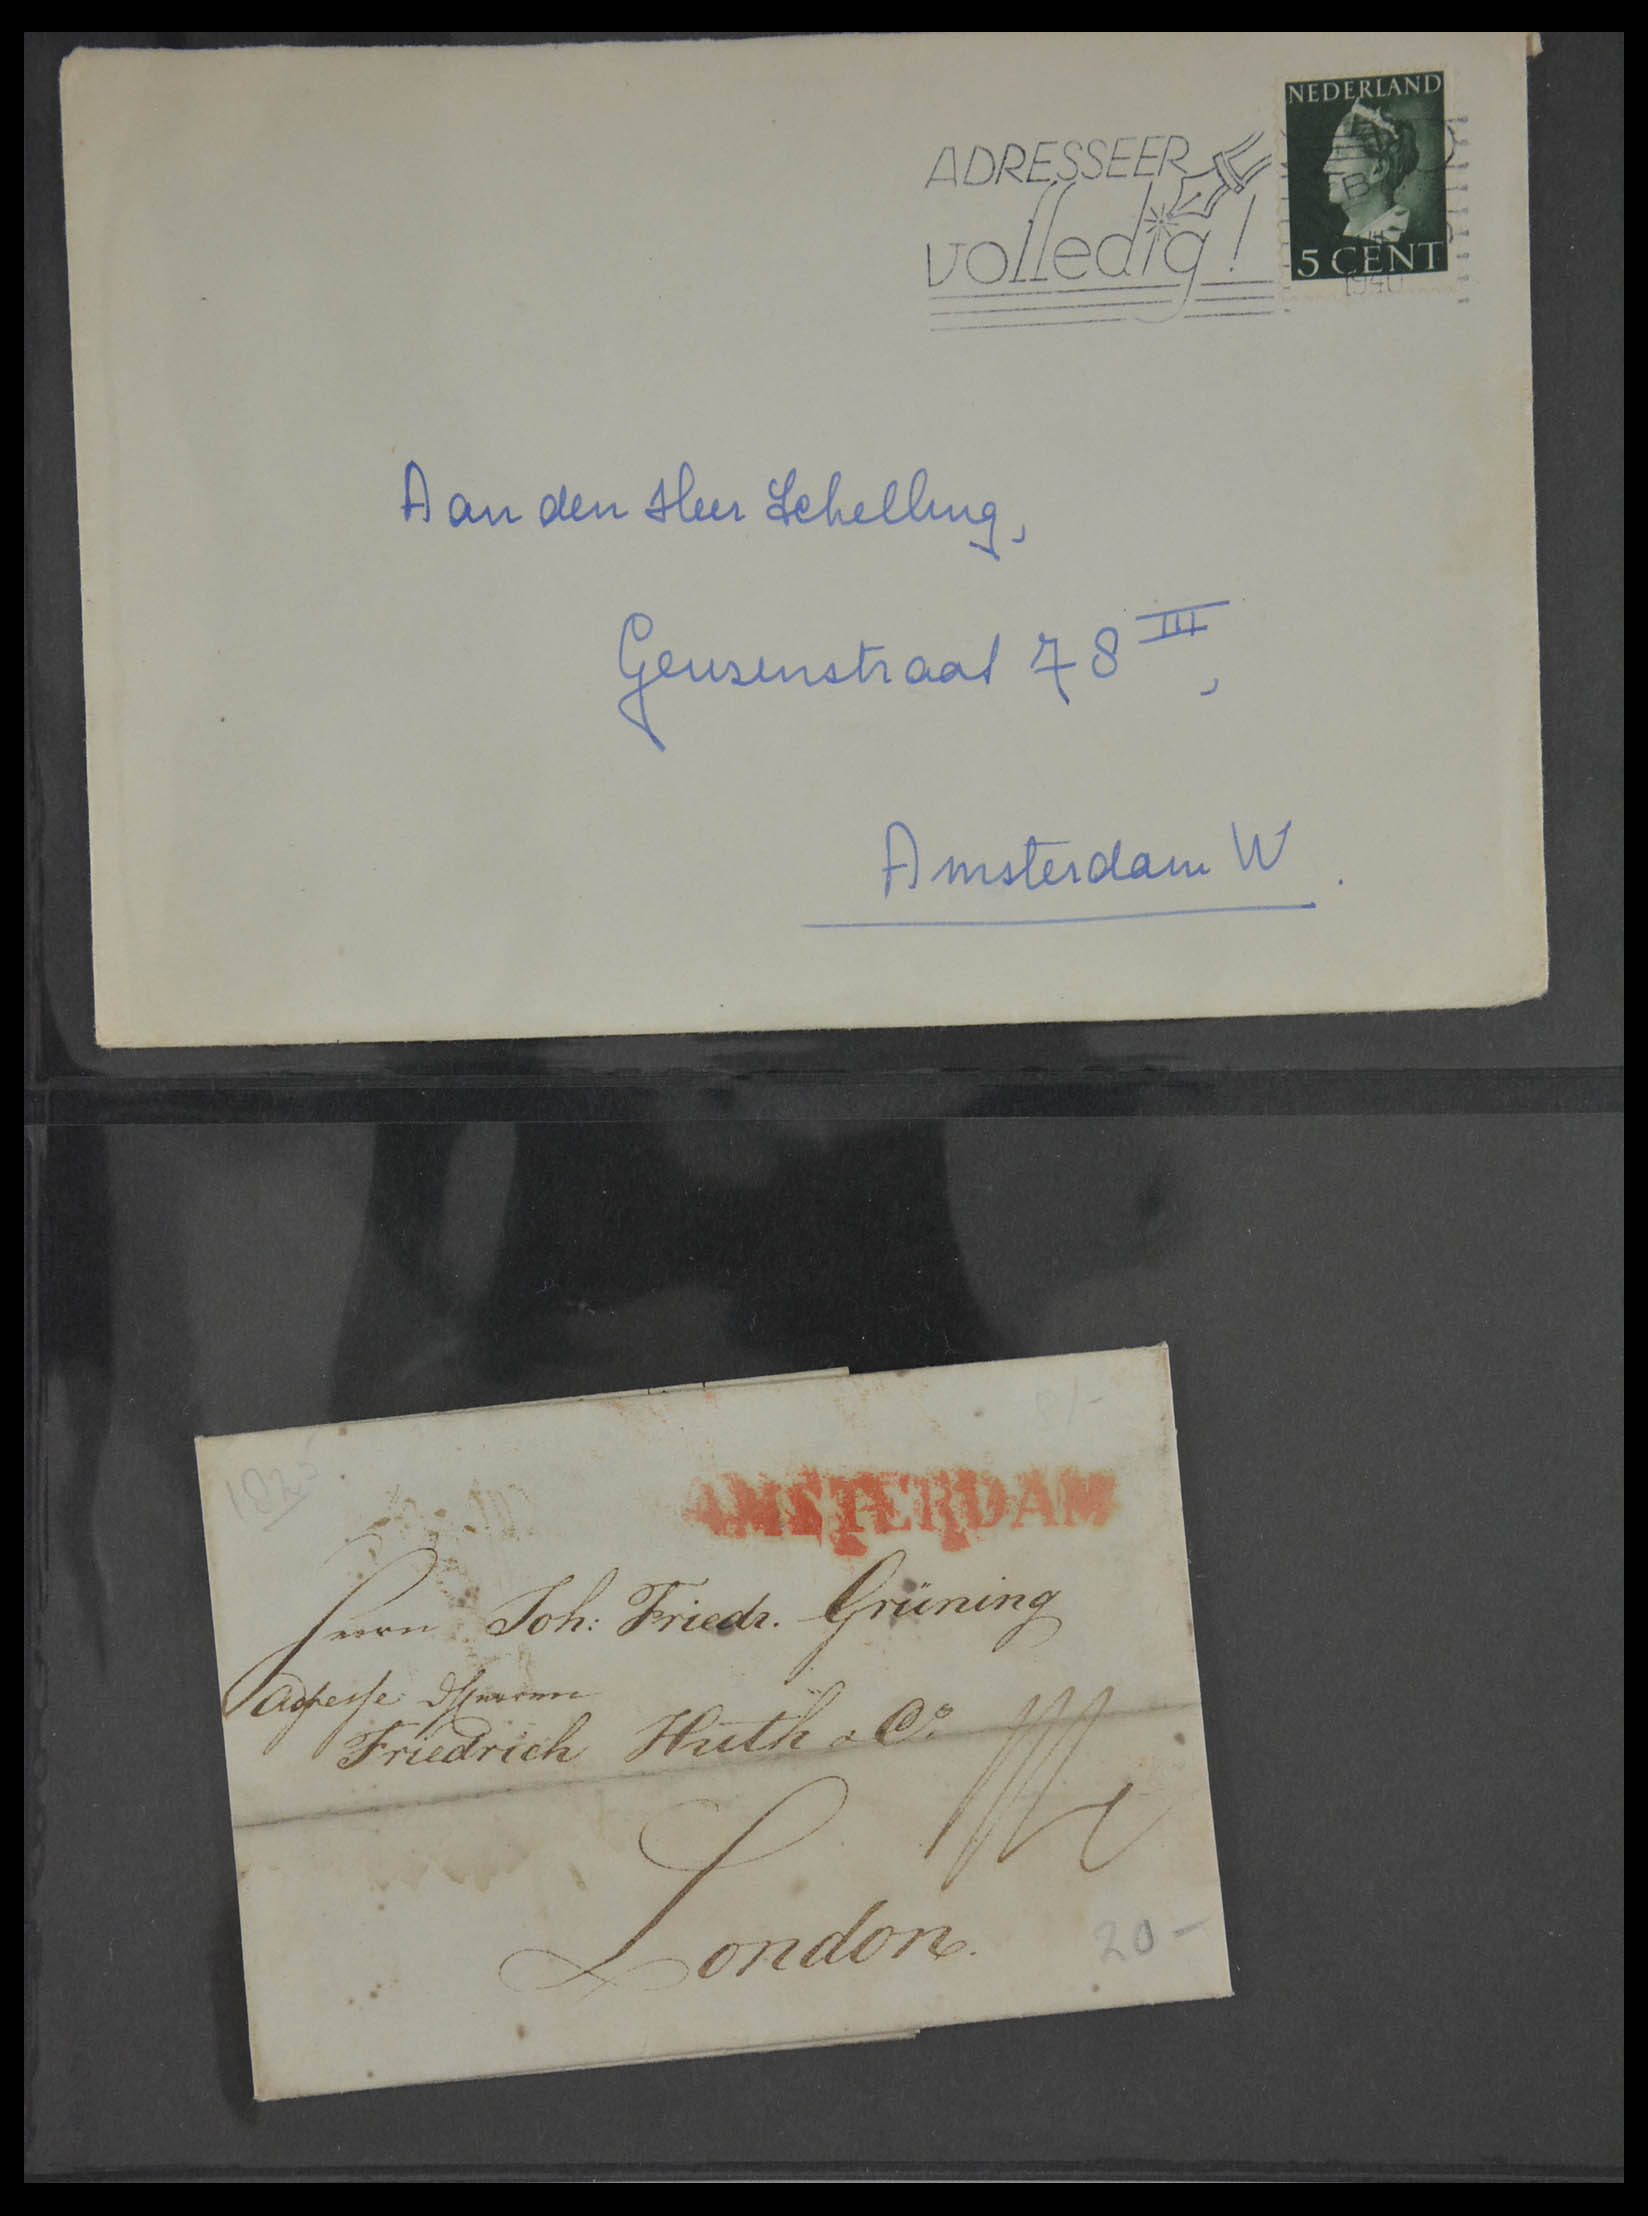 NEDERLAND
ADRESSEER
volledig!
5 CENT
1940
Aan den Heer Schelling,
Geuzenstraat 78 III,
Amsterdam W.
1825
8/-
AMSTERDAM
Herrn Joh: Friedr. Grüning
Adresse Herren
Friedrich Huth & Co.
London.
20-